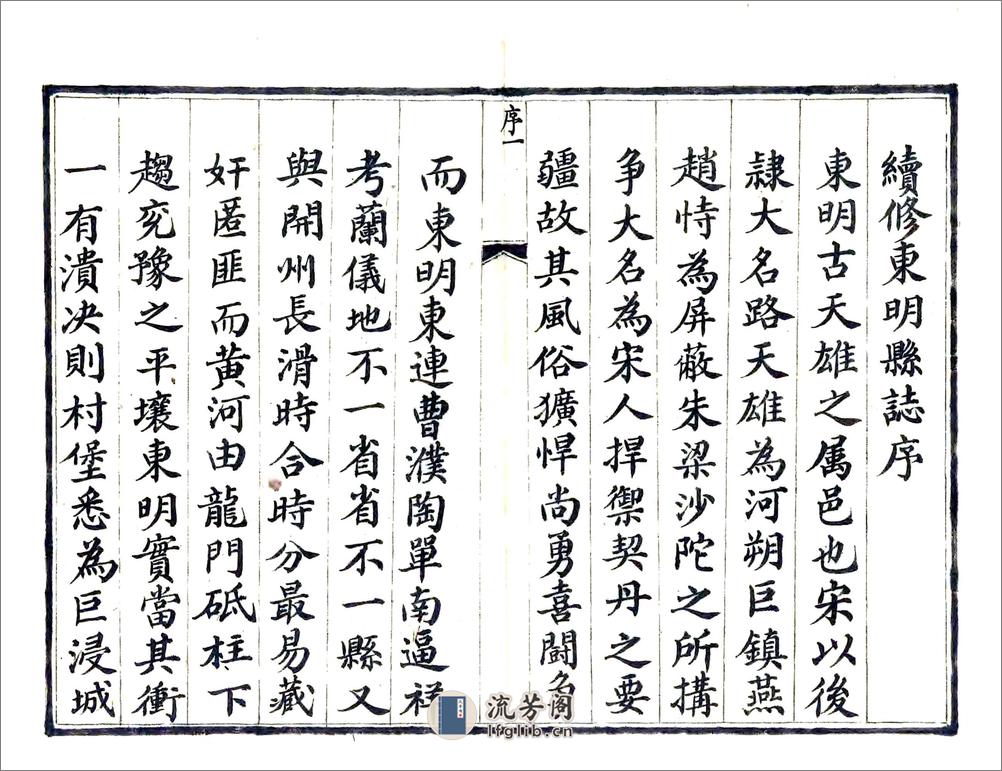 續修東明縣誌序
東明古天雄之属邑也宋以後
隷大名路天雄為河朔巨鎮燕
趙恃為屏蔽朱梁沙陀之所搆
争大名為宋人捍禦契丹之要
疆故其風俗獷悍尚勇喜鬪
序一
而東明東連曹濮陶單南逼祥
考蘭儀地不一省省不一縣又
與開州長滑時合時分最易藏
奸匿匪而黄河由龍門砥柱下
趨兖豫之平壤東明實當其衝
一有潰决則村堡悉為巨浸城
流芳阁
lfglib.cn